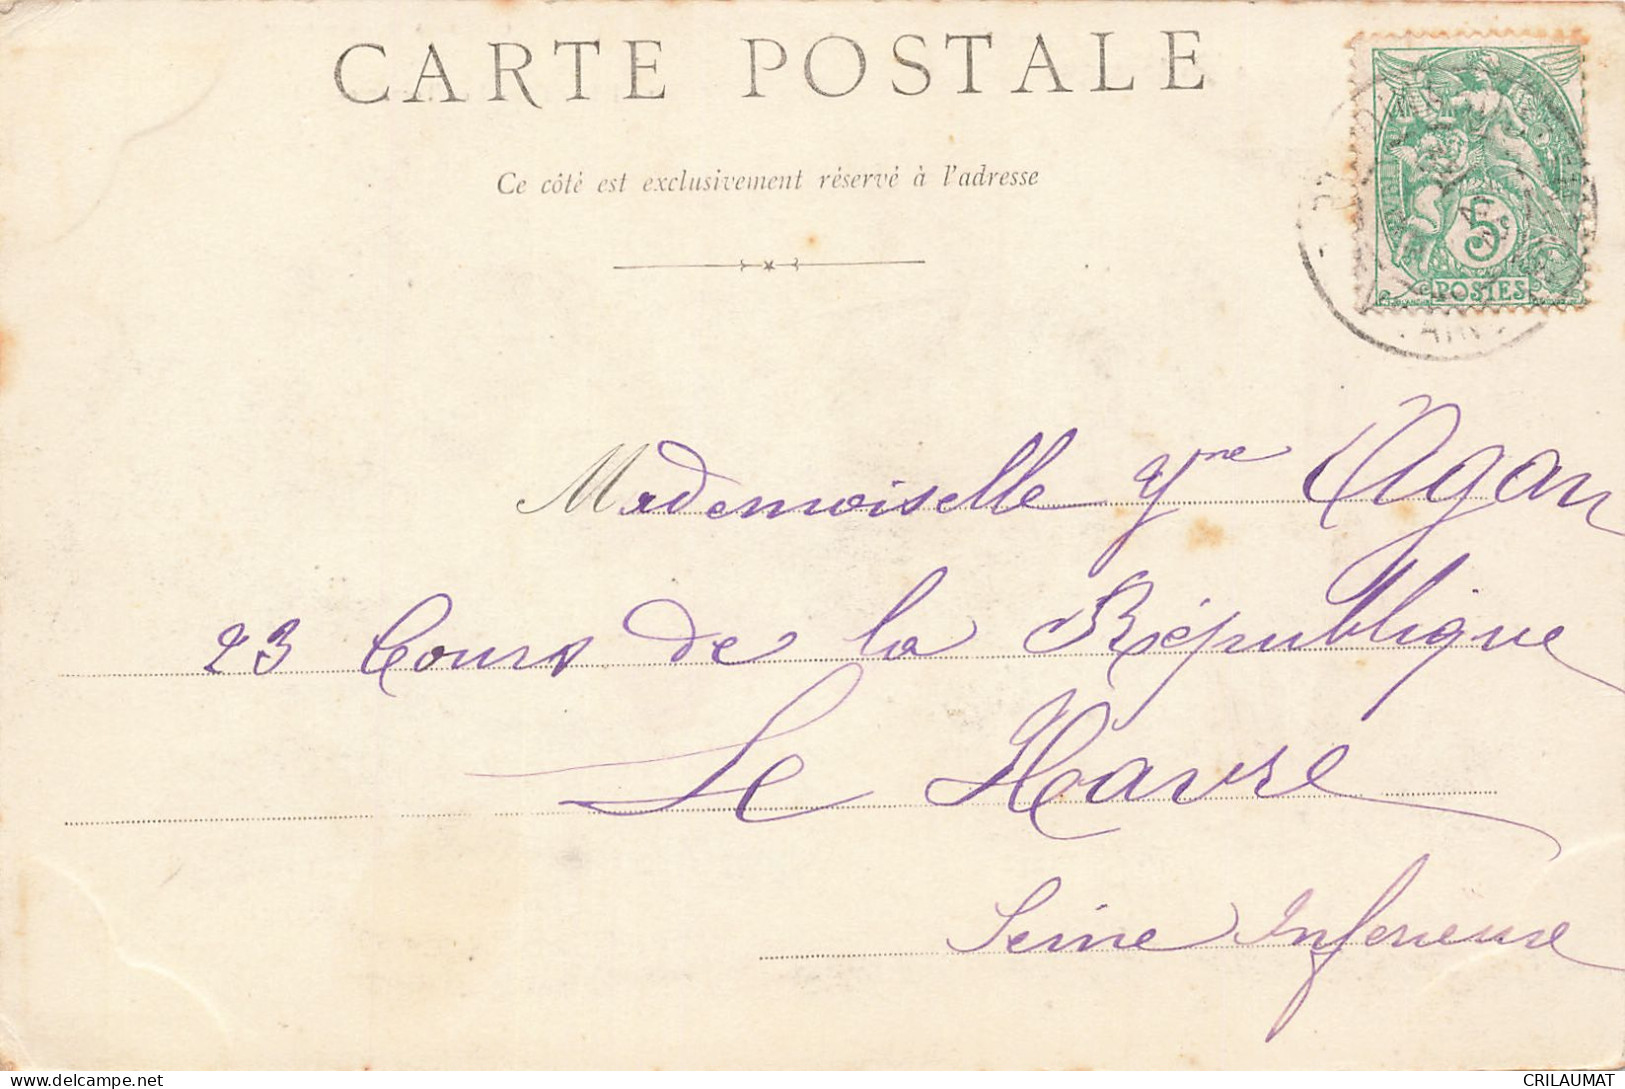 CARTE POSTALE
Ce côté est exclusivement réservé à l'adresse
5
POSTES
Mademoiselle Yne Agan
23 Cours de la République
Le Havre
Seine Inferieure
CRILAUMAT